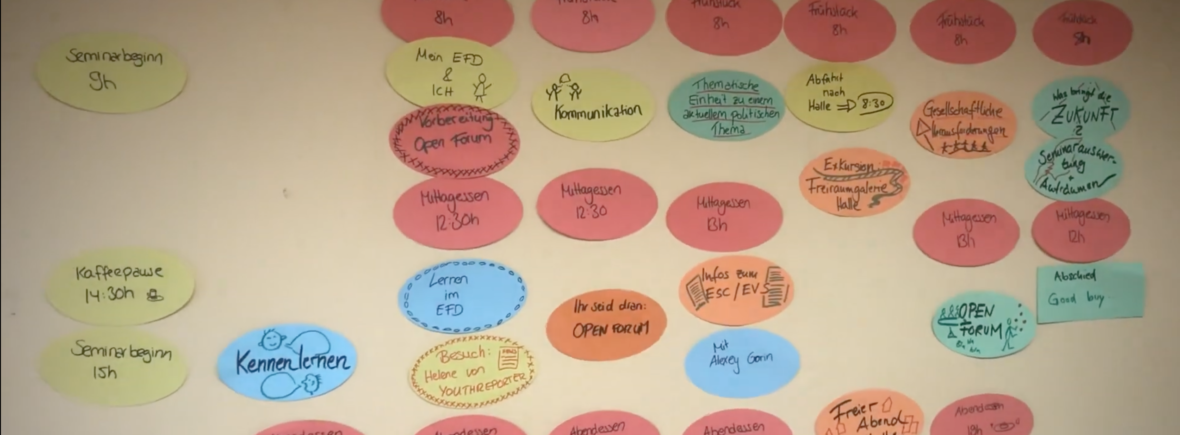 Seminarbeginn
9h
Kaffeepause
14:30h
Seminarbeginn
15h
Kennenlernen
8h
Mein EFD
&
ICH
Vorbereitung
Open Forum
Mittagessen
12:30h
Lernen
im
EFD
Besuch:
Helene von
YOUTHREPORTER
Abendessen
Frühstück
8h
Kommunikation
Mittagessen
12:30
Ihr seid dran:
OPEN FORUM
Abendessen
Frühstück
8h
Thematische
Einheit zu einem
aktuellem politischen
Thema
Mittagessen
13h
Infos zum
ESC/EVS
Mit
Alexey Gorin
Abendessen
Frühstück
8h
Abfahrt
nach
Halle ⇒ 8:30
Exkursion
Freiraumgalerie
Halle
Freier
Abend
Frühstück
8h
Gesellschaftliche
Herausforderungen
Mittagessen
13h
OPEN
FORUM
Abendessen
18h
Frühstück
8h
Was bringt die
ZUKUNFT
?
Seminarauswer-
tung
+
Aufräumen
Mittagessen
12h
Abschied
Good buy